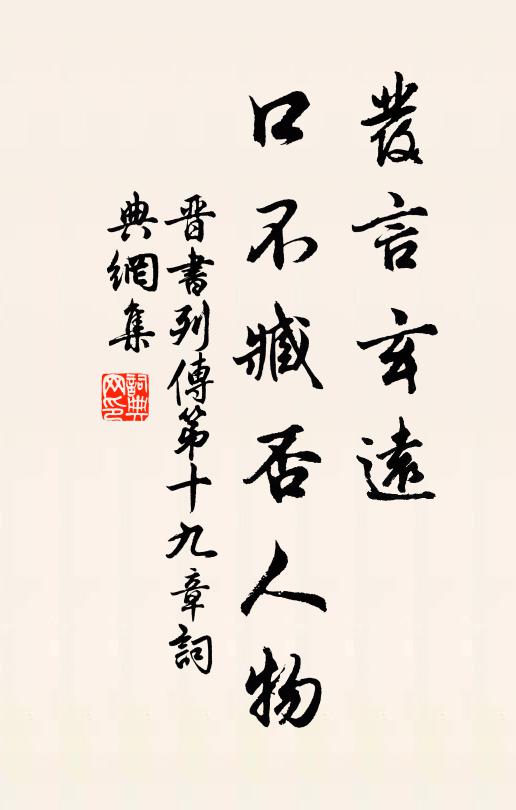 發言玄遠
口不臧否人物
晉書列傳第十九章詞
典網集
詞典
网印